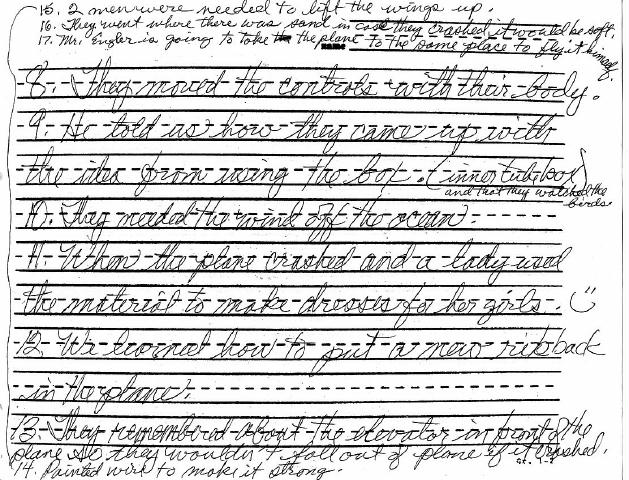 15. 2 men were needed to lift the wings up.
16. They went where there was sand in case they crashed it would be soft.
17. Mr. Engler is going to take the plane to the same place to fly it himself.
8. They moved the controls with their body.
9. He told us how they came up with
the idea from using the box. (inner tube box)
and that they watched the
birds
10. They needed the wind off the ocean.
11. When the plane crashed and a lady used
the material to make dresses for her girls. :)
12. We learned how to put a new rib back
in the plane.
13. They remembered about the elevator in front of the
plane so they wouldn't fall out of plane if it crashed.
14. Painted wire to make it strong.